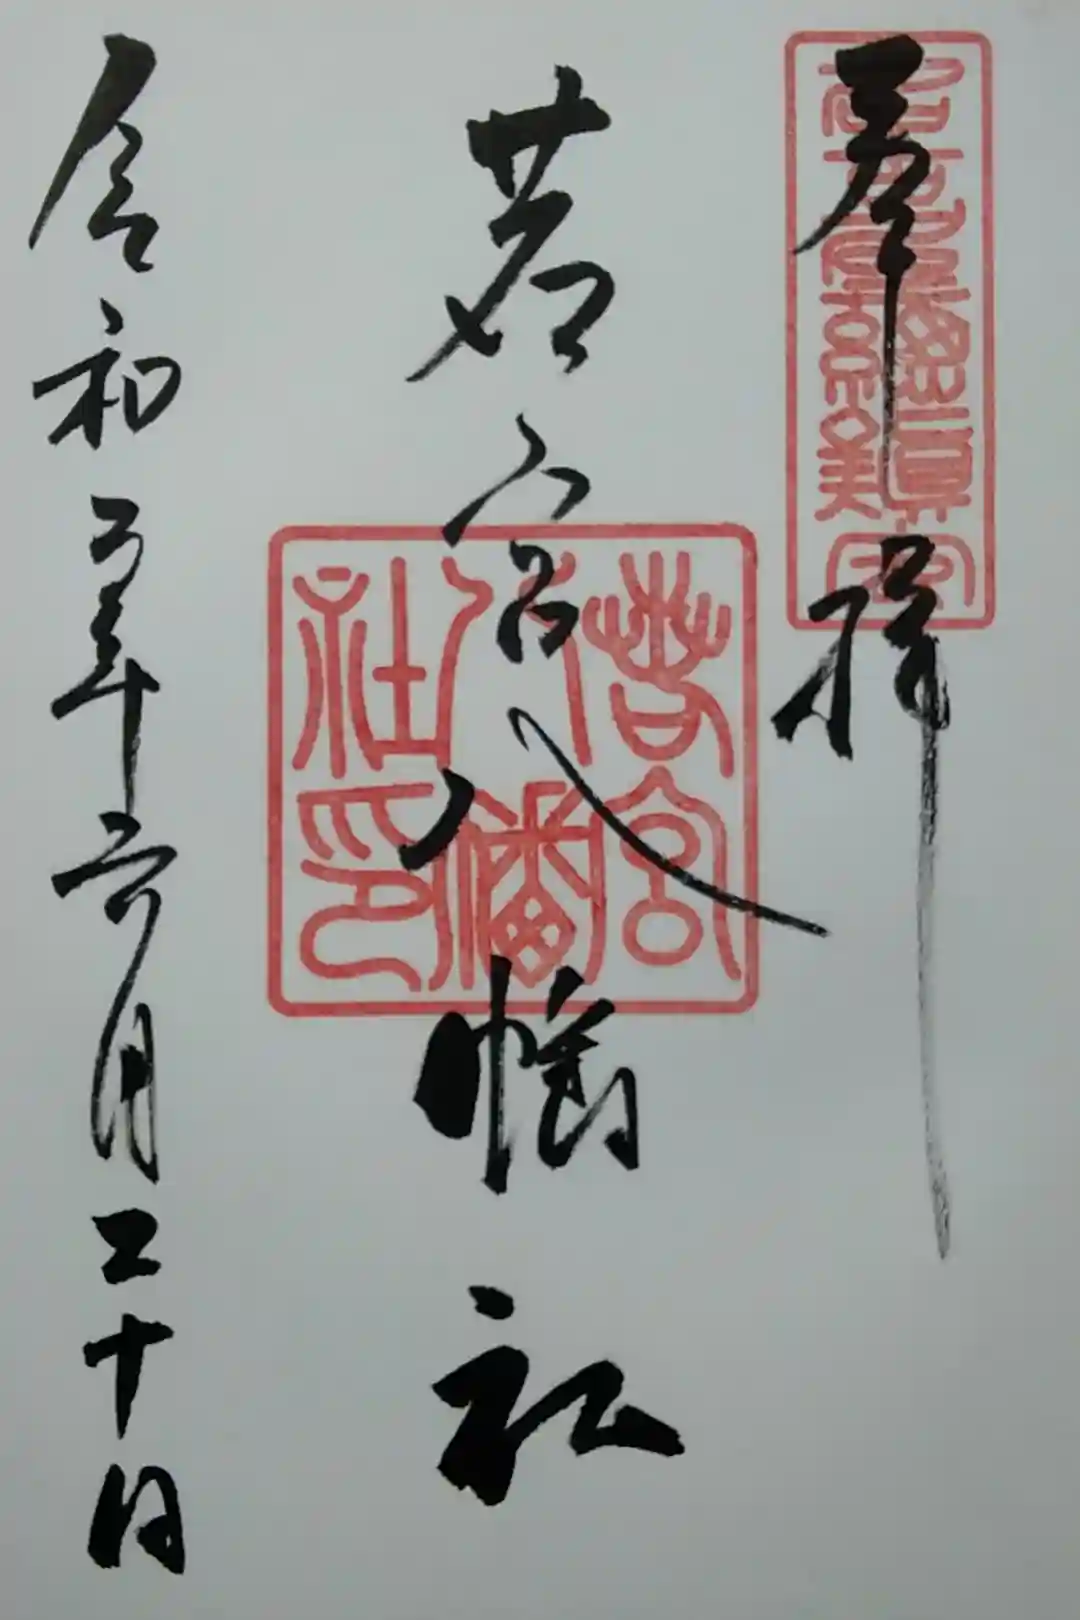 奉拝
若宮八幡社
若宮
八幡
社印
令和 年六月二十日